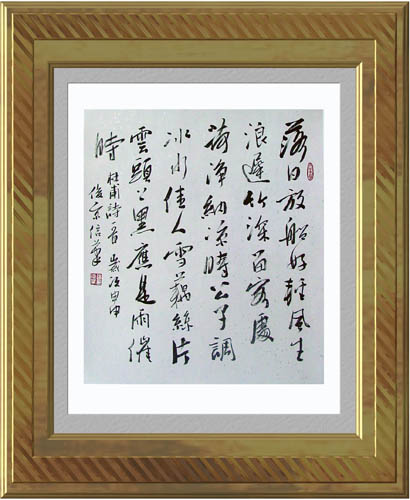 落日放船好輕風生
浪遲竹深留客處
荷淨納凉時公子調
冰水佳人雪藕絲片
雲頭上黑應是雨催
時 杜甫詩一首 歲次甲申
信筆